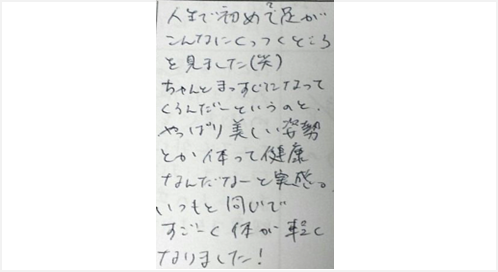 人生で初めて足が
こんなにくっつくところ
を見ました(笑)
ちゃんとまっすぐになって
くるんだーというのと、
やっぱり美しい姿勢
とか体って健康
なんだなーと実感。
いつもと同じで
すごーく体が軽く
なりました!